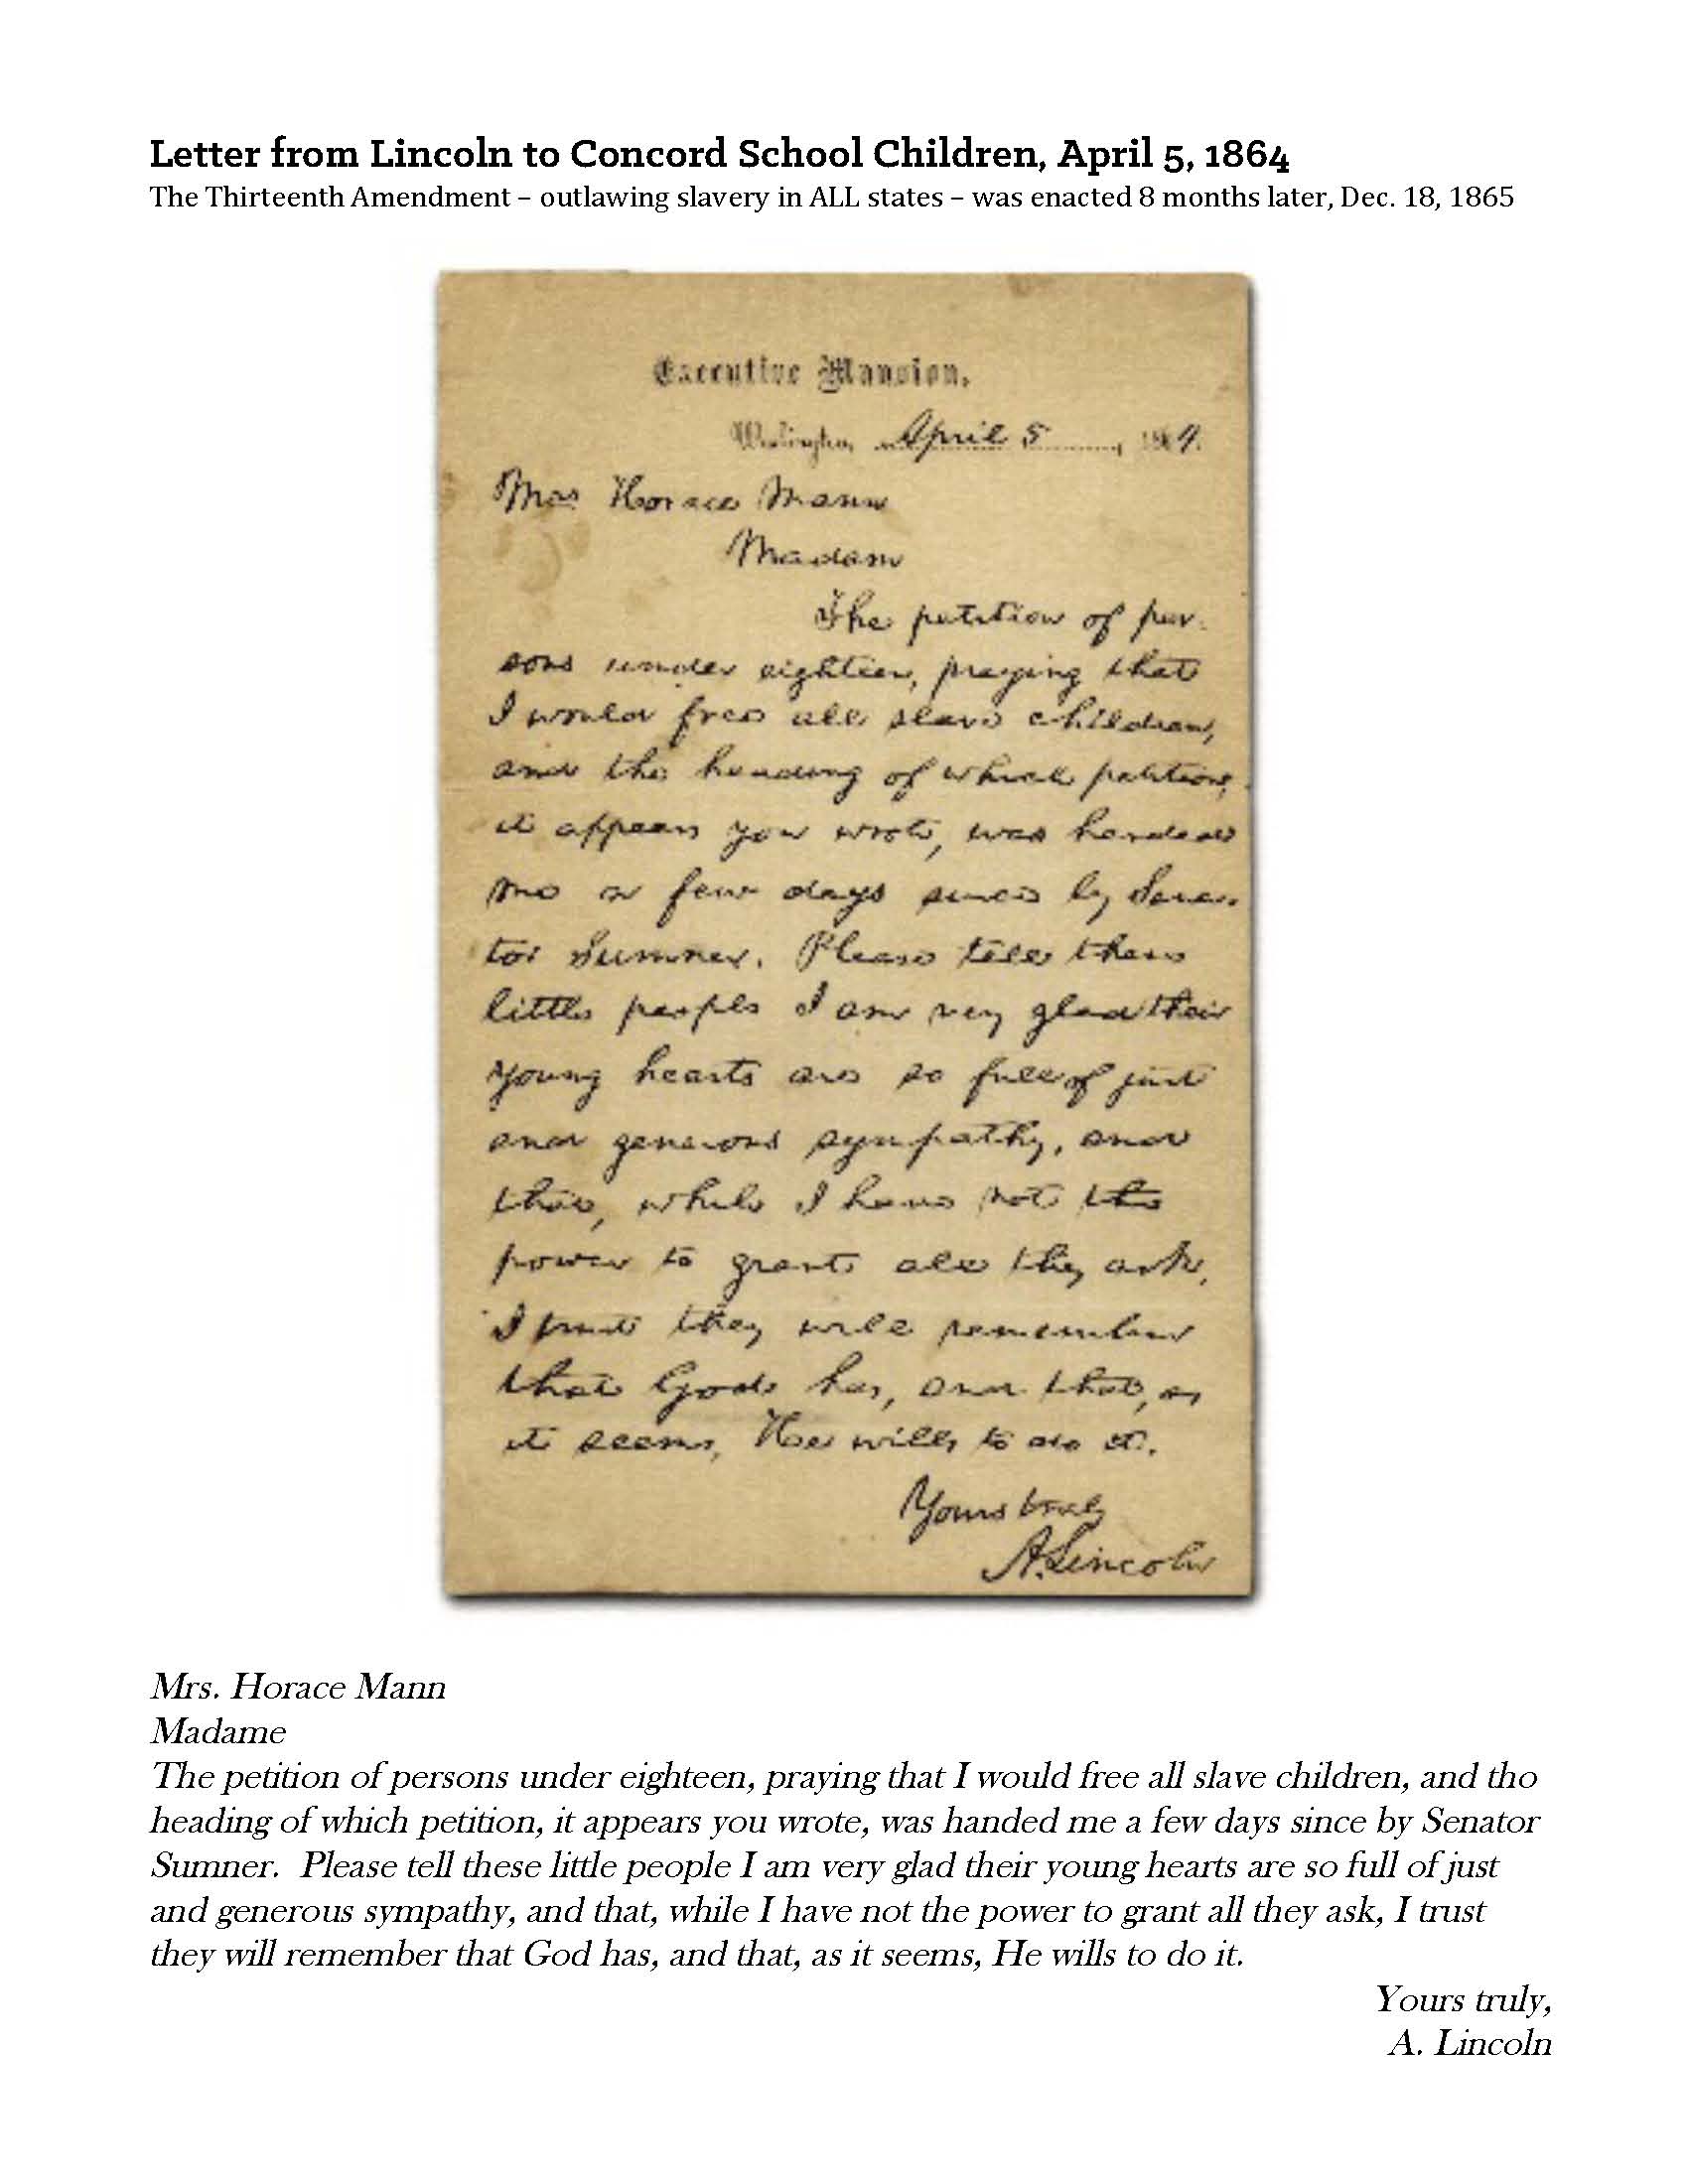 Letter from Lincoln to Concord School Children, April 5, 1864
The Thirteenth Amendment – outlawing slavery in ALL states – was enacted 8 months later, Dec. 18, 1865
Executive Mansion,
Washington, April 5, 1864.
Mrs Horace Mann
Madam
The petition of per-
sons under eighteen, praying that
I would free all slave children,
and the heading of which petition,
it appears you wrote, was handed
me a few days since by Sena-
tor Sumner. Please tell these
little people I am very glad their
young hearts are so full of just
and generous sympathy, and
that, while I have not the
power to grant all they ask,
I trust they will remember
that God has, and that, as
it seems, He wills to do it.
Yours truly
A. Lincoln
Mrs. Horace Mann
Madame
The petition of persons under eighteen, praying that I would free all slave children, and tho
heading of which petition, it appears you wrote, was handed me a few days since by Senator
Sumner.  Please tell these little people I am very glad their young hearts are so full of just
and generous sympathy, and that, while I have not the power to grant all they ask, I trust
they will remember that God has, and that, as it seems, He wills to do it.
Yours truly,
A. Lincoln